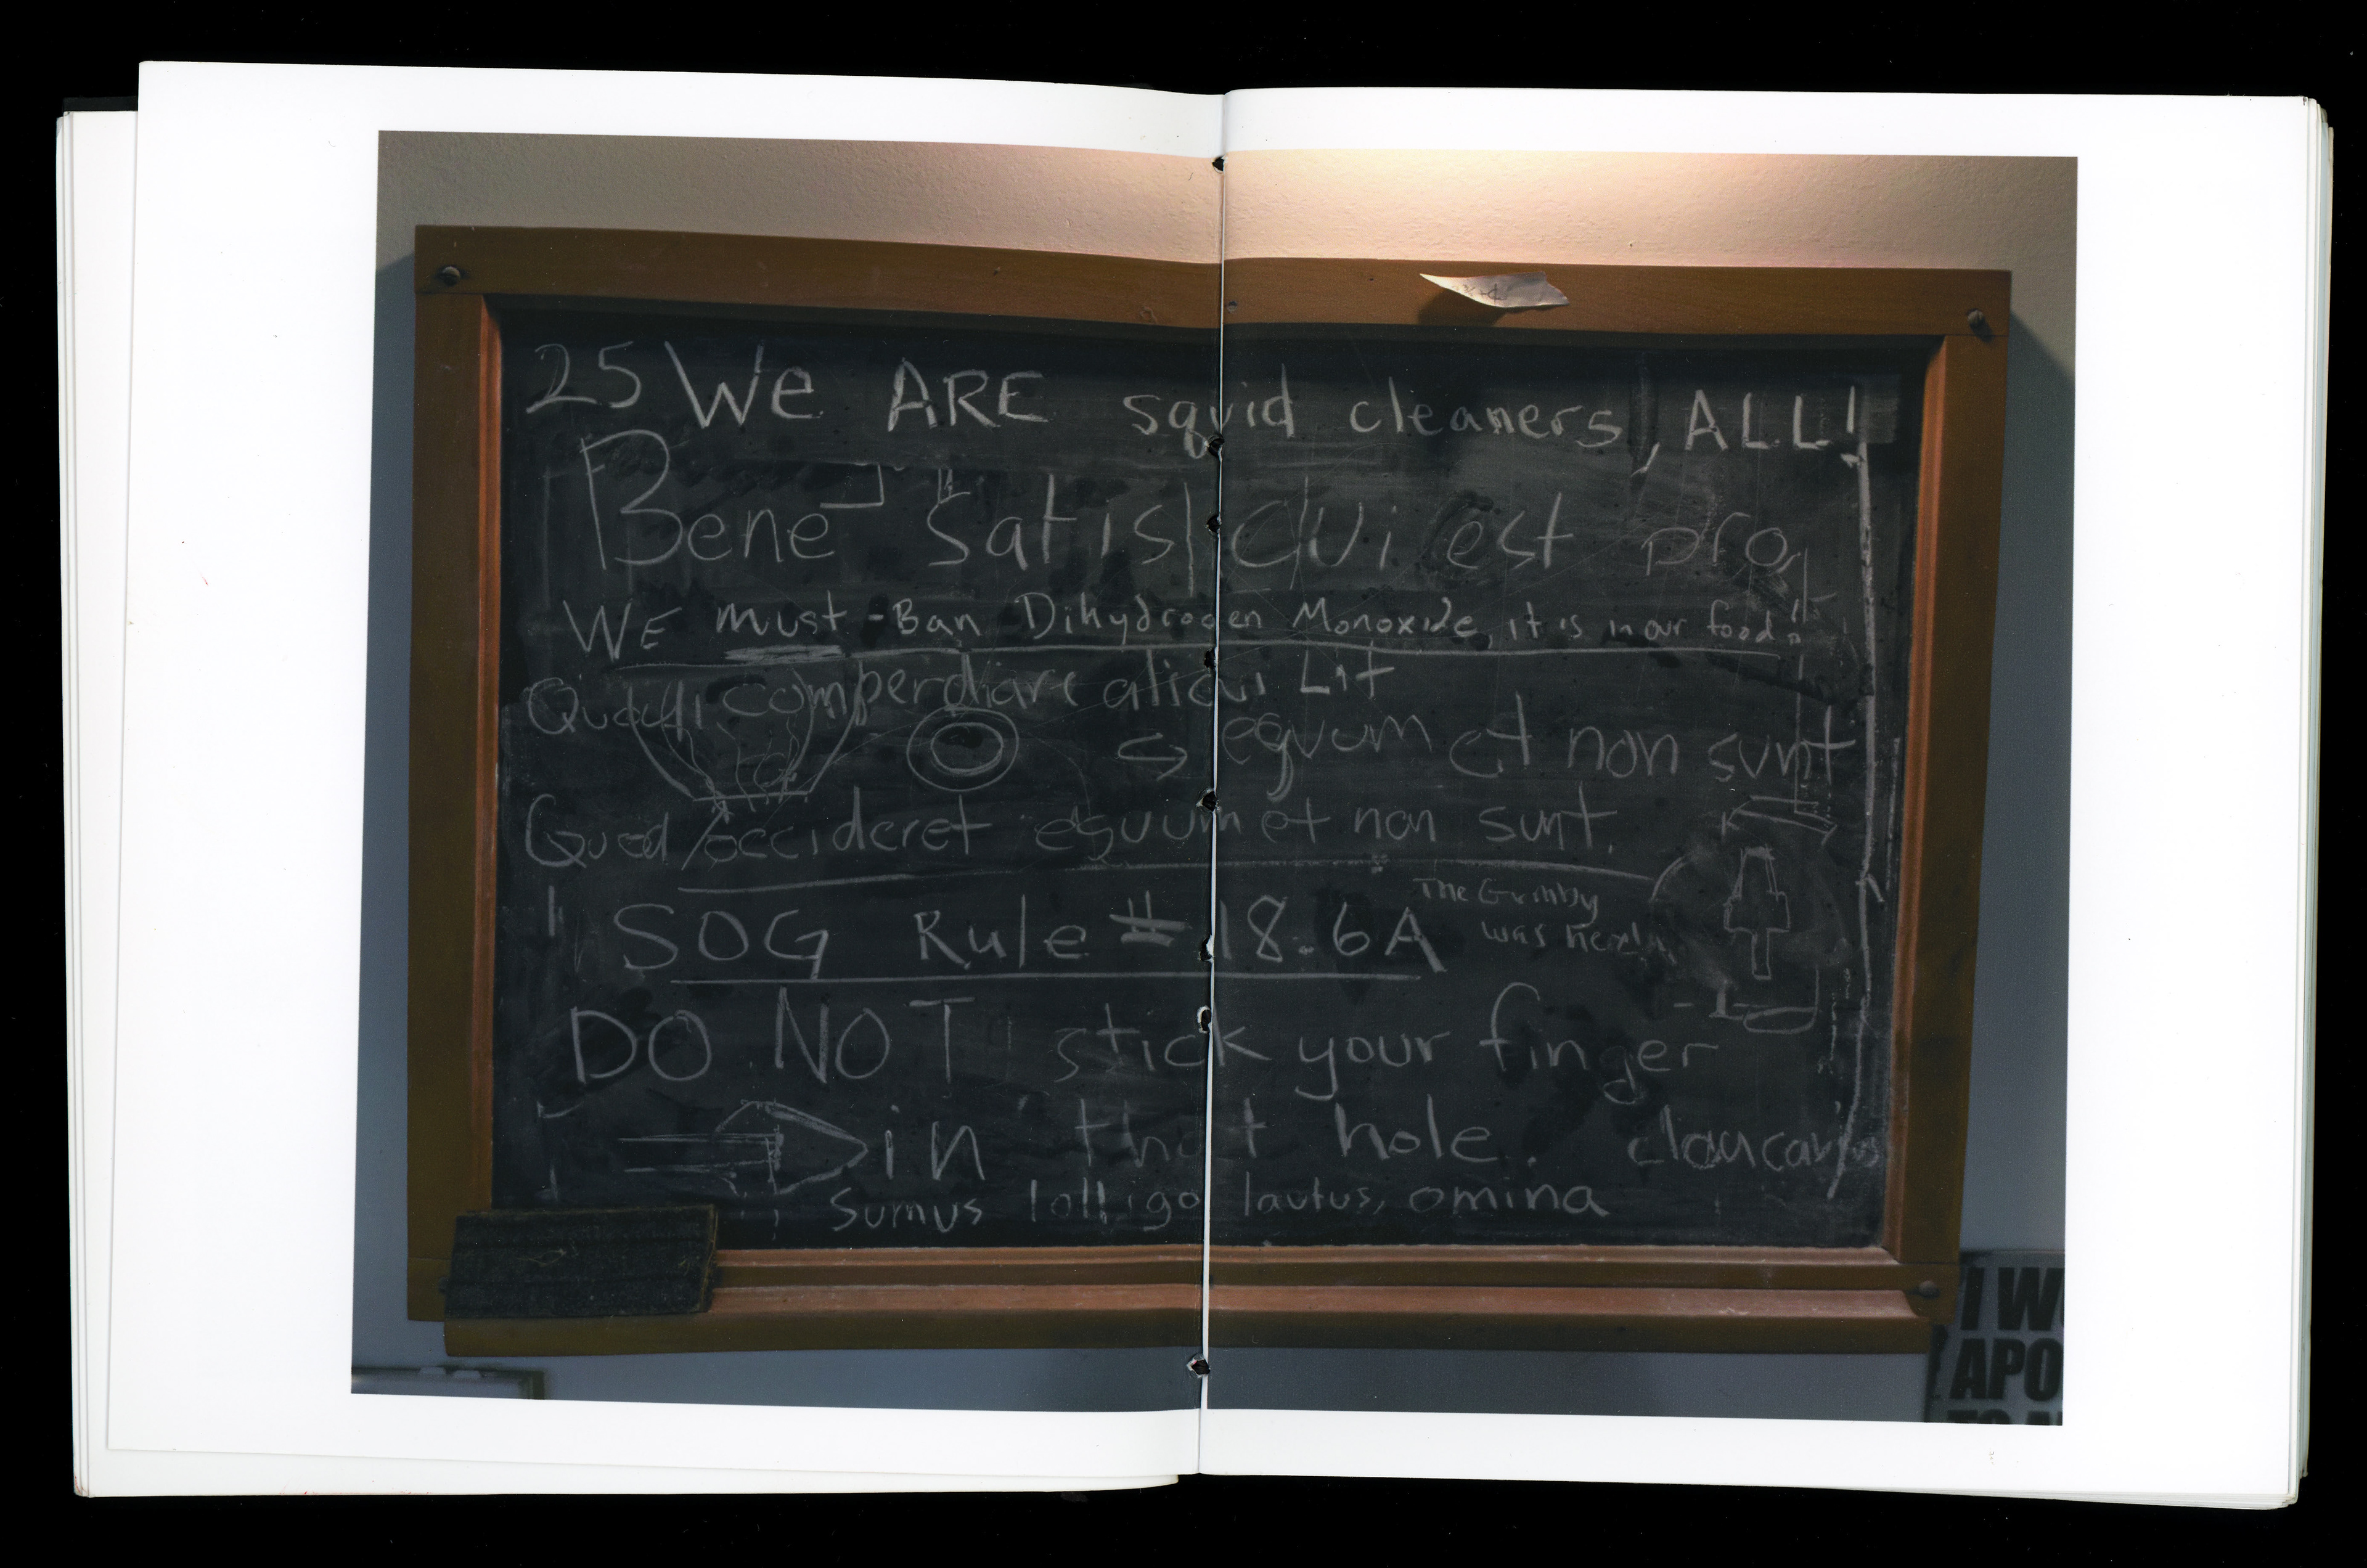 25 We ARE squid cleaners, ALL!
Bene satis qui est pro
WE must Ban Dihydrogen Monoxide, it is in our food!
comperdiare alicui Lit
equum et non sunt
Quod occideret equum et non sunt.
The Grimby
was here!
SOG Rule # 18.6A
DO NOT stick your finger
in that hole.
Sumus lolligo lautus, omina
I W
APO